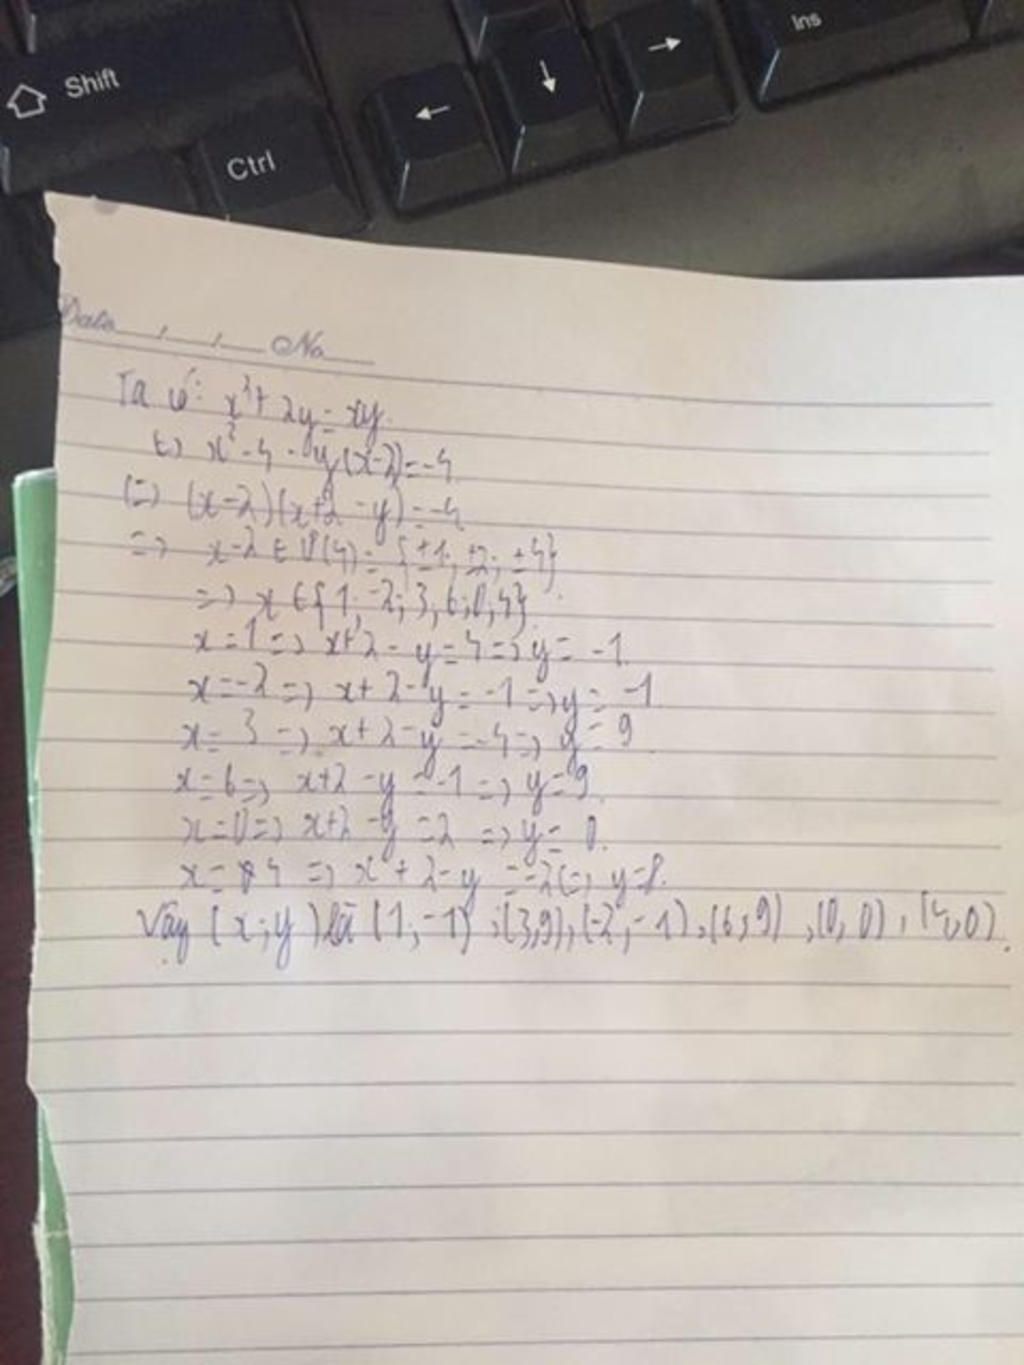 Shift
Ctrl
←
↓
→
Ins
Date / / No
Ta có: x²+ 2y = xy.
(=) x² - 4 - y(x-2) = -4
(=) (x-2)(x+2 - y) = -4
=) x-2 ∈ Ư(4) = {±1; ±2; ±4}
=) x ∈ {1; -2; 3, 6; 0, 4}.
x = 1 =) x+2 - y = 4 =) y = -1.
x = -2 =) x + 2 - y = -1 =) y = -1
x = 3 =) x + 2 - y = -4 =) y = 9.
x = 6 =) x+2 - y = -1 =) y = 9.
x = 0 =) x+2 - y = 2 =) y = 0.
x = 4 =) x + 2 - y = -2 (=) y = 8.
Vậy (x; y) là (1, -1) ; (3,9), (-2, -1), (6, 9) , (0, 0) , (4,0).